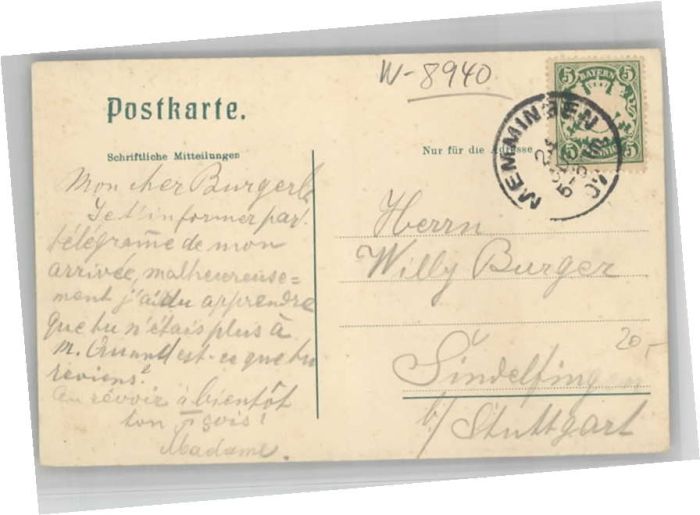 W-8940
Postkarte.
5 BAYERN 5
5 PFENNIG 5
MEMMINGEN
Schriftliche Mitteilungen
Nur für die Adresse
Mon cher Burgerle
Je t'informer par
télégrame de mon
arrivée, malheureuse=
ment j'ai du apprendre
que tu n'étais plus à
m. Quand est-ce que tu
reviens?
au revoir à bientôt
ton
Madame.
Herrn
Willy Burger
Sindelfingen
b/ Stuttgart
20,-